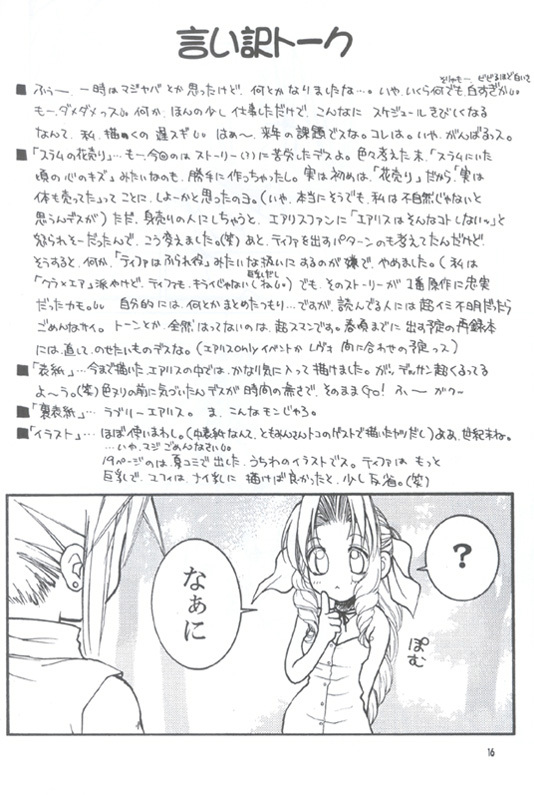 言い訳トーク
そりゃもー、ビビるほど白いて
■ ふぅー、一時はマジヤバとか思ったけど、何とかなりましたな…。いや、いくら何でも白すぎかし。
もー、ダメダメっス。何か、ほんの少し仕事しただけで、こんなに スケジュールきびしくなる
なんて、私、描くの遅スギ。はぁ〜、来年の課題でスな。コレは。いや、がんばるっス。
■「スラムの花売り」…も一、今回のは ストーリー(?)に苦労したデスよ。色々考えた末、「スラムにいた
頃の心のキズ」みたいなのも、勝手に作っちゃったし。実は初めは、「花売り」だから「実は
体も売ってた」ってことに、しよーかと思ったのヨ。(いや、本当にそうでも、私は不自然じゃないと
思うんデスが)ただ、身売りの人にしちゃうと、エアリスファンに「エアリスはそんなコトしないっ」と
怒られそーだったんで、こう考えました。(笑)あと、ティファを出すパターンのも考えてたんだけど、
そうすると、何か、「ティファはふられ役」みたいな扱いにするのが嫌で、やめました。(私は
「クラ×エア」派やけど、ティファも、キライじゃないしね)でも、そのストーリーが1番原作に忠実
だったカモ。 自分的には、何とかまとめたつもり…ですが、読んでる人には超イミ不明だったら
ごめんなサイ。トーンとか、全然はってないのは、超スマンです。春頃までに 出す予定の再録本
には、直して、のせたいものデスな。(エアリスonlyイベントか レヴォ 間に合わせの予定っス)
■「表紙」…今まで描いたエアリスの中では、かなり気に入って描けました。が、デッサン超くるってる
よ〜う。(笑)色ヌリの前に気づいたんデスが時間の無さで、そのままGO! ふー がクー
■「裏表紙」… ラブリーエアリス。 ま、こんなモンじゃろ。
■「イラスト」… ほぼ使いまわし。(中表紙なんて、ともみんさんトコのゲストで描いたヤツだし)ああ、世紀末ね。
…いや、マジごめんなさい。
19ページのは、夏コミで出した、うちわのイラストでス。ティファは もっと
巨乳で、ユフィは、ナイ乳に 描けば良かったと、少し反省。(笑)
?
なぁに
ぽむ
16